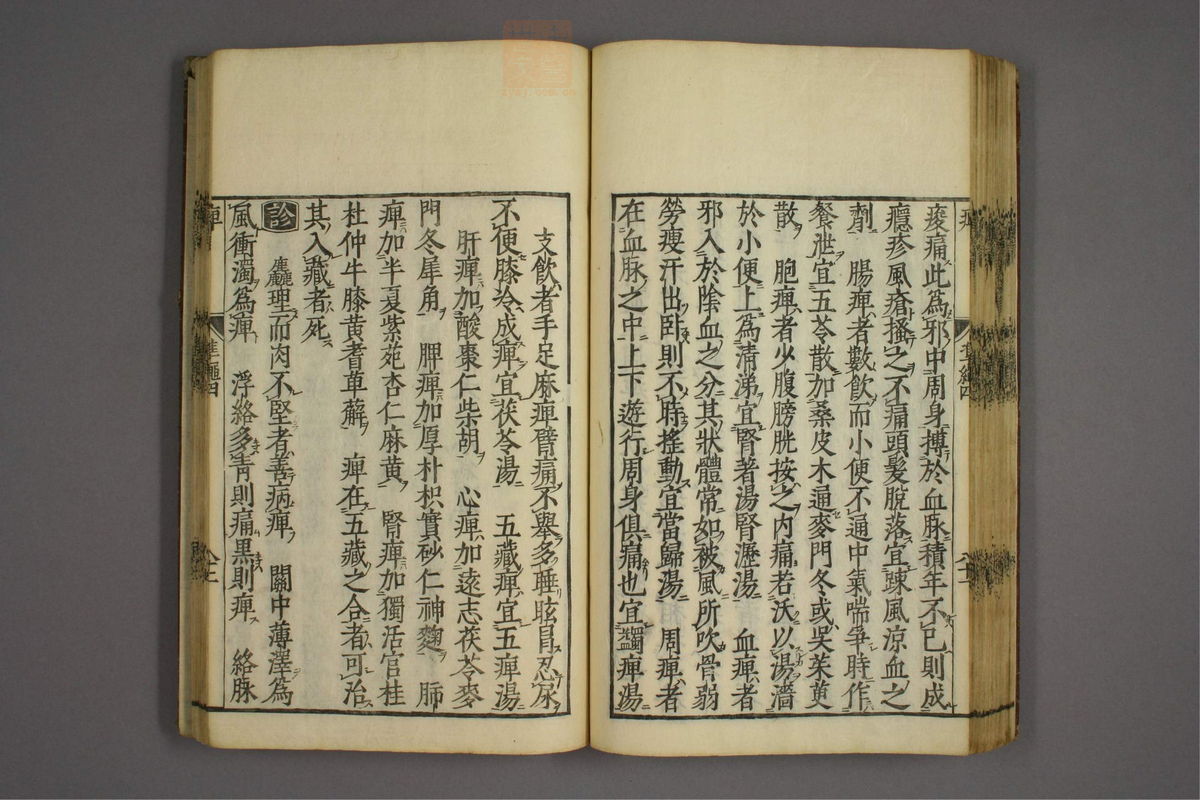 痠痛此為邪中周身搏於血脉積年不已則成
癮疹風瘡搔之不痛頭髮脫落宜踈風涼血之
劑　腸痺者數飲而小便不通中氣喘爭時作
飱泄宜五苓散加桑皮木通麥門冬或吳茱萸
散　胞痺者少腹膀胱按之内痛若沃以湯濇
於小便上為清涕宜腎著湯腎瀝湯　血痺者
邪入於陰血之分其狀體常如被風所吹骨弱
勞瘦汗出卧則不時搖動宜當歸湯　周痺者
在血脉之中上下遊行周身俱痛也宜蠲痺湯
支飲者手足麻痺臂痛不舉多睡眩冒忍尿
不便膝冷成痺宜茯苓湯　五藏痺宜五痺湯
肝痺加酸棗仁柴胡　心痺加遠志茯苓麥
門冬犀角　脾痺加厚朴枳實砂仁神麴　肺
痺加半夏紫菀杏仁麻黃　腎痺加獨活官桂
杜仲牛膝黃耆萆薢　痺在五藏之合者可治
其入藏者死
診　麤理而肉不堅者善病痺　關中薄澤為
風衝濁為痺　浮絡多青則痛黒則痺　絡脉
準繩四